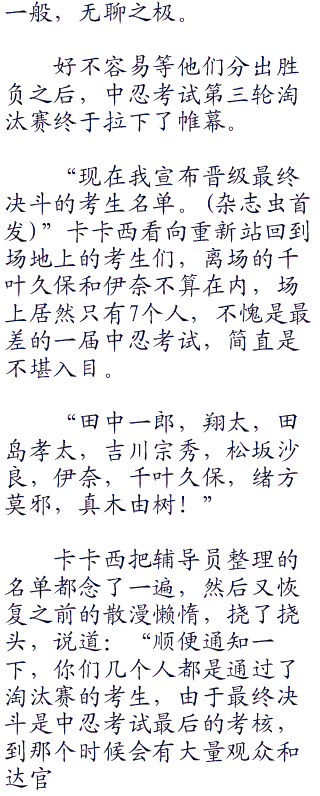 一般，无聊之极。
好不容易等他们分出胜
负之后，中忍考试第三轮淘
汰赛终于拉下了帷幕。
“现在我宣布晋级最终
决斗的考生名单。(杂志虫首
发)”卡卡西看向重新站回到
场地上的考生们，离场的千
叶久保和伊奈不算在内，场
上居然只有7个人，不愧是最
差的一届中忍考试，简直是
不堪入目。
“田中一郎，翔太，田
岛孝太，吉川宗秀，松坂沙
良，伊奈，千叶久保，绪方
莫邪，真木由树！”
卡卡西把辅导员整理的
名单都念了一遍，然后又恢
复之前的散漫懒惰，挠了挠
头，说道：“顺便通知一
下，你们几个人都是通过了
淘汰赛的考生，由于最终决
斗是中忍考试最后的考核，
到那个时候会有大量观众和
达官